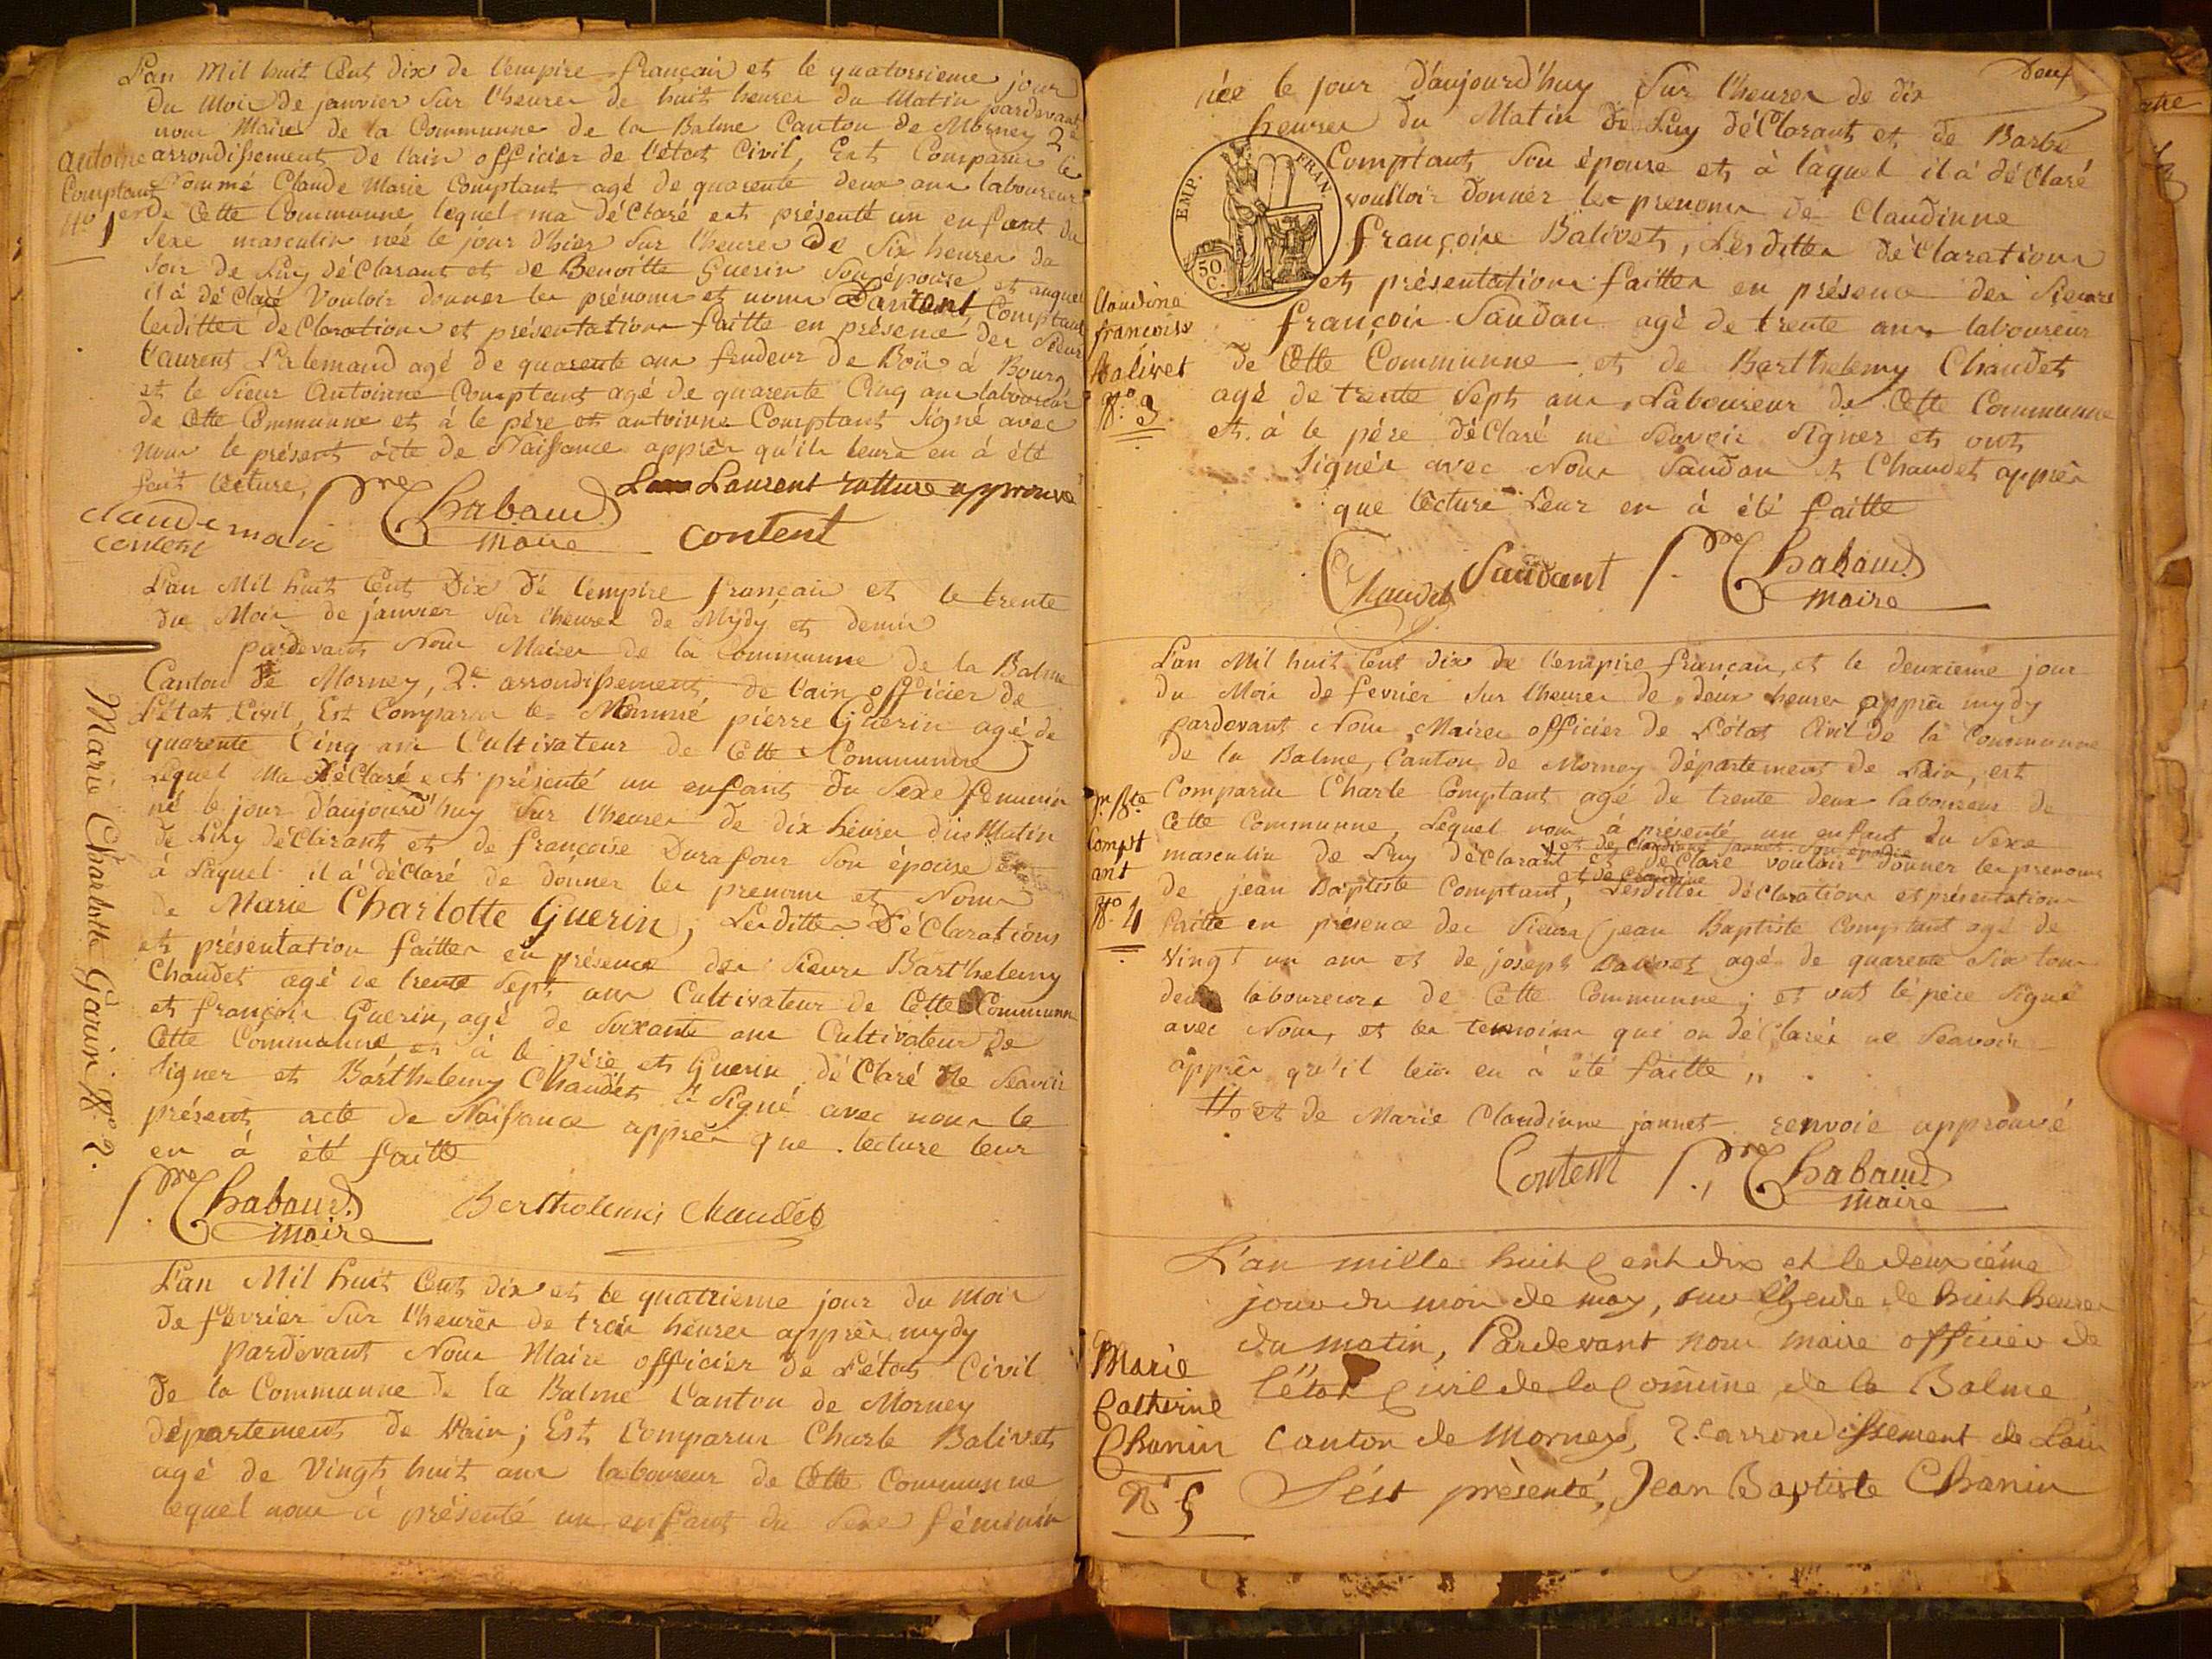 L'an Mil huit Cent dix de l'empire français et le quatorsieme jour
du Mois de janvier Sur l'heures de huit heures du Matin pardevant
nous Maires de la Communne de la Balme Canton de Morney 2e
arrondissement de l'ain officier de l'état Civil, Est Comparus le
Nommé Claude Marie Comptant agé de quarente deux ans laboureur
de Cette Communne lequel ma déClaré est présenté un enfant du
Sexe masculin née le jour d'hier Sur l'heures de Six heures du
Soir de Luy déClarant et de Benoitte Guerin Son épouse et auquel
il à déClaré Vouloir donner les prénoms et noms Comptant
lesdittes déClarations et présentations faitte en présence des Sieur
Laurent Lalemand agé de quarente ans fendeur de Bois à Bourg
et le Sieur Antoinne Comptant agé de quarente Cinq ans laboureur
de Cette Communne et à le père et antoinne Comptant Signé avec
nous le présent acte de Naissance apprès qu'ils leurs en à été
fait lecture,
Antoine
Comptant
No 1er
Laurent ratture approuvé
claude marie
content
Pre Chabaud
maire
content
L'an Mil huit Cent Dix de l'empire français et le trente
du Mois de janvier Sur l'heures de Mydy et demis
pardevant Nous Maires de la Communne de la Balme
Canton de Morney, 2e arrondissement, de l'ain officier de
L'état Civil, Est Comparus le Nommé pierre Guerin agé de
quarente Cinq ans Cultivateur de Cette Communne
Lequel Ma déClaré et présenté un enfant du Sexe femenin
né le jour d'aujourd'huy Sur l'heures de dix heures du Matin
de Luy déClarant et de françoise Durafour Son épouse
à Laquel il à déClaré de donner les prenoms et Noms
de Marie Charlotte Guerin, Lesdittes DéClarations
et présentation faittes en présence des Sieurs Barthelemy
Chaudet agé de trente Sept ans Cultivateur de Cette Communne
et françois Guerin, agé de Soixante ans Cultivateur de
Cette Communne et à le père et Guerin déClaré Ne Scavoir
Signer et Barthelemy Chaudet à Signé avec nous le
présent acte de Naissance apprès que lecture leur
en à été faitte
Marie Charlotte Garin No 2.
Pre Chabaud
maire
Bertholemis Chaudet
L'an Mil huit Cent dix et le quatrieme jour du Mois
de février Sur l'heures de trois heures apprès mydy
pardevant Nous Maire officier de L'état Civil
de la Communne de la Balme Canton de Morney
département de L'ain; Est Comparus Charle Balivet
agé de Vingt huit ans laboureur de Cette Communne
lequel nous à présenté un enfant du Sexe féminin
Deux
née le jour d'aujourd'huy Sur l'heures de dix
heures du Matin de Luy déClarant et de Barbe
Comptant Son épouse et à laquel il à déClaré
voulloir donner les prenoms de Claudinne
françoise Balivet, Lesdittes déClarations
et présentations faittes en présence des Sieurs
françois Saudan agé de trente ans laboureur
de Cette Communne et de Barthelemy Chaudet
agé de trente Sept ans, Laboureur de Cette Communne
et à le père déClaré ne Seavoir Signer et ont
Signés avec Nous Saudan et Chaudet apprès
que lecture Leur en à été faitte
EMP. FRAN.
50
C.
Claudine
françoise
Balivet
No 3
Chaudet Saudant Pre Chabaud
maire
L'an Mil huit Cent dix de l'empire français, et le deuxieme jour
du Mois de fevrier Sur l'heures de deux heures apprès mydy
pardevant Nous Maires officier de L'état Civil de la Communne
de la Balme, Canton de Morney département de Lain, est
Comparus Charle Comptant agé de trente deux laboureur de
Cette Communne, Lequel nous à présenté un enfant du Sexe
et de Claudinne Jannet Son épouse
masculin de Luy déClarant et déClare vouloir donner les prenoms
et de Claudine
de jean Baptiste Comptant, Lesdittes déClarations et présentations
faitte en presence des Sieurs jean Baptiste Comptant agé de
Vingt un ans et de joseph Balivet agé de quarente Six tous
deux laboureurs de Cette Communne; et ont le père Signé
avec Nous, et les temoins qui on déClarés ne Seavoir
apprès qu'il leur en à été faitte
et de Marie Claudinne jannet renvoie approuvé
Jn Bte
Compt
ant
No 4
Content Pre Chabaud
maire
L'an mille huit Cent dix et le deuxième
jour du mois de may, sur l'heure de huit heures
du matin, Pardevant nous maire officier de
l'état Civil de la Comune de la Balme
Canton de Mornay, 2e arrondissement de Lain
S'est présenté, Jean Baptiste Chanin
Marie
Catherine
Chanin
No 5